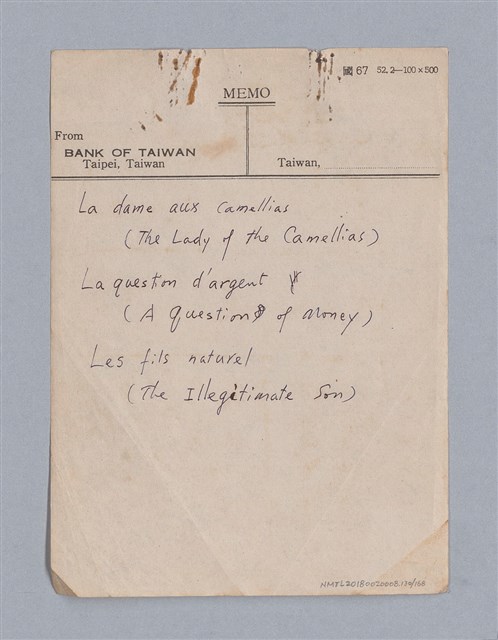 國 67 52.2—100×500
MEMO
From
BANK OF TAIWAN
Taipei, Taiwan
Taiwan,
La dame aux camellias
(The Lady of the Camellias)
La question d'argent
(A Question of Money)
Les fils naturel
(The Illegitimate Son)
NMTL20180020008.179/188